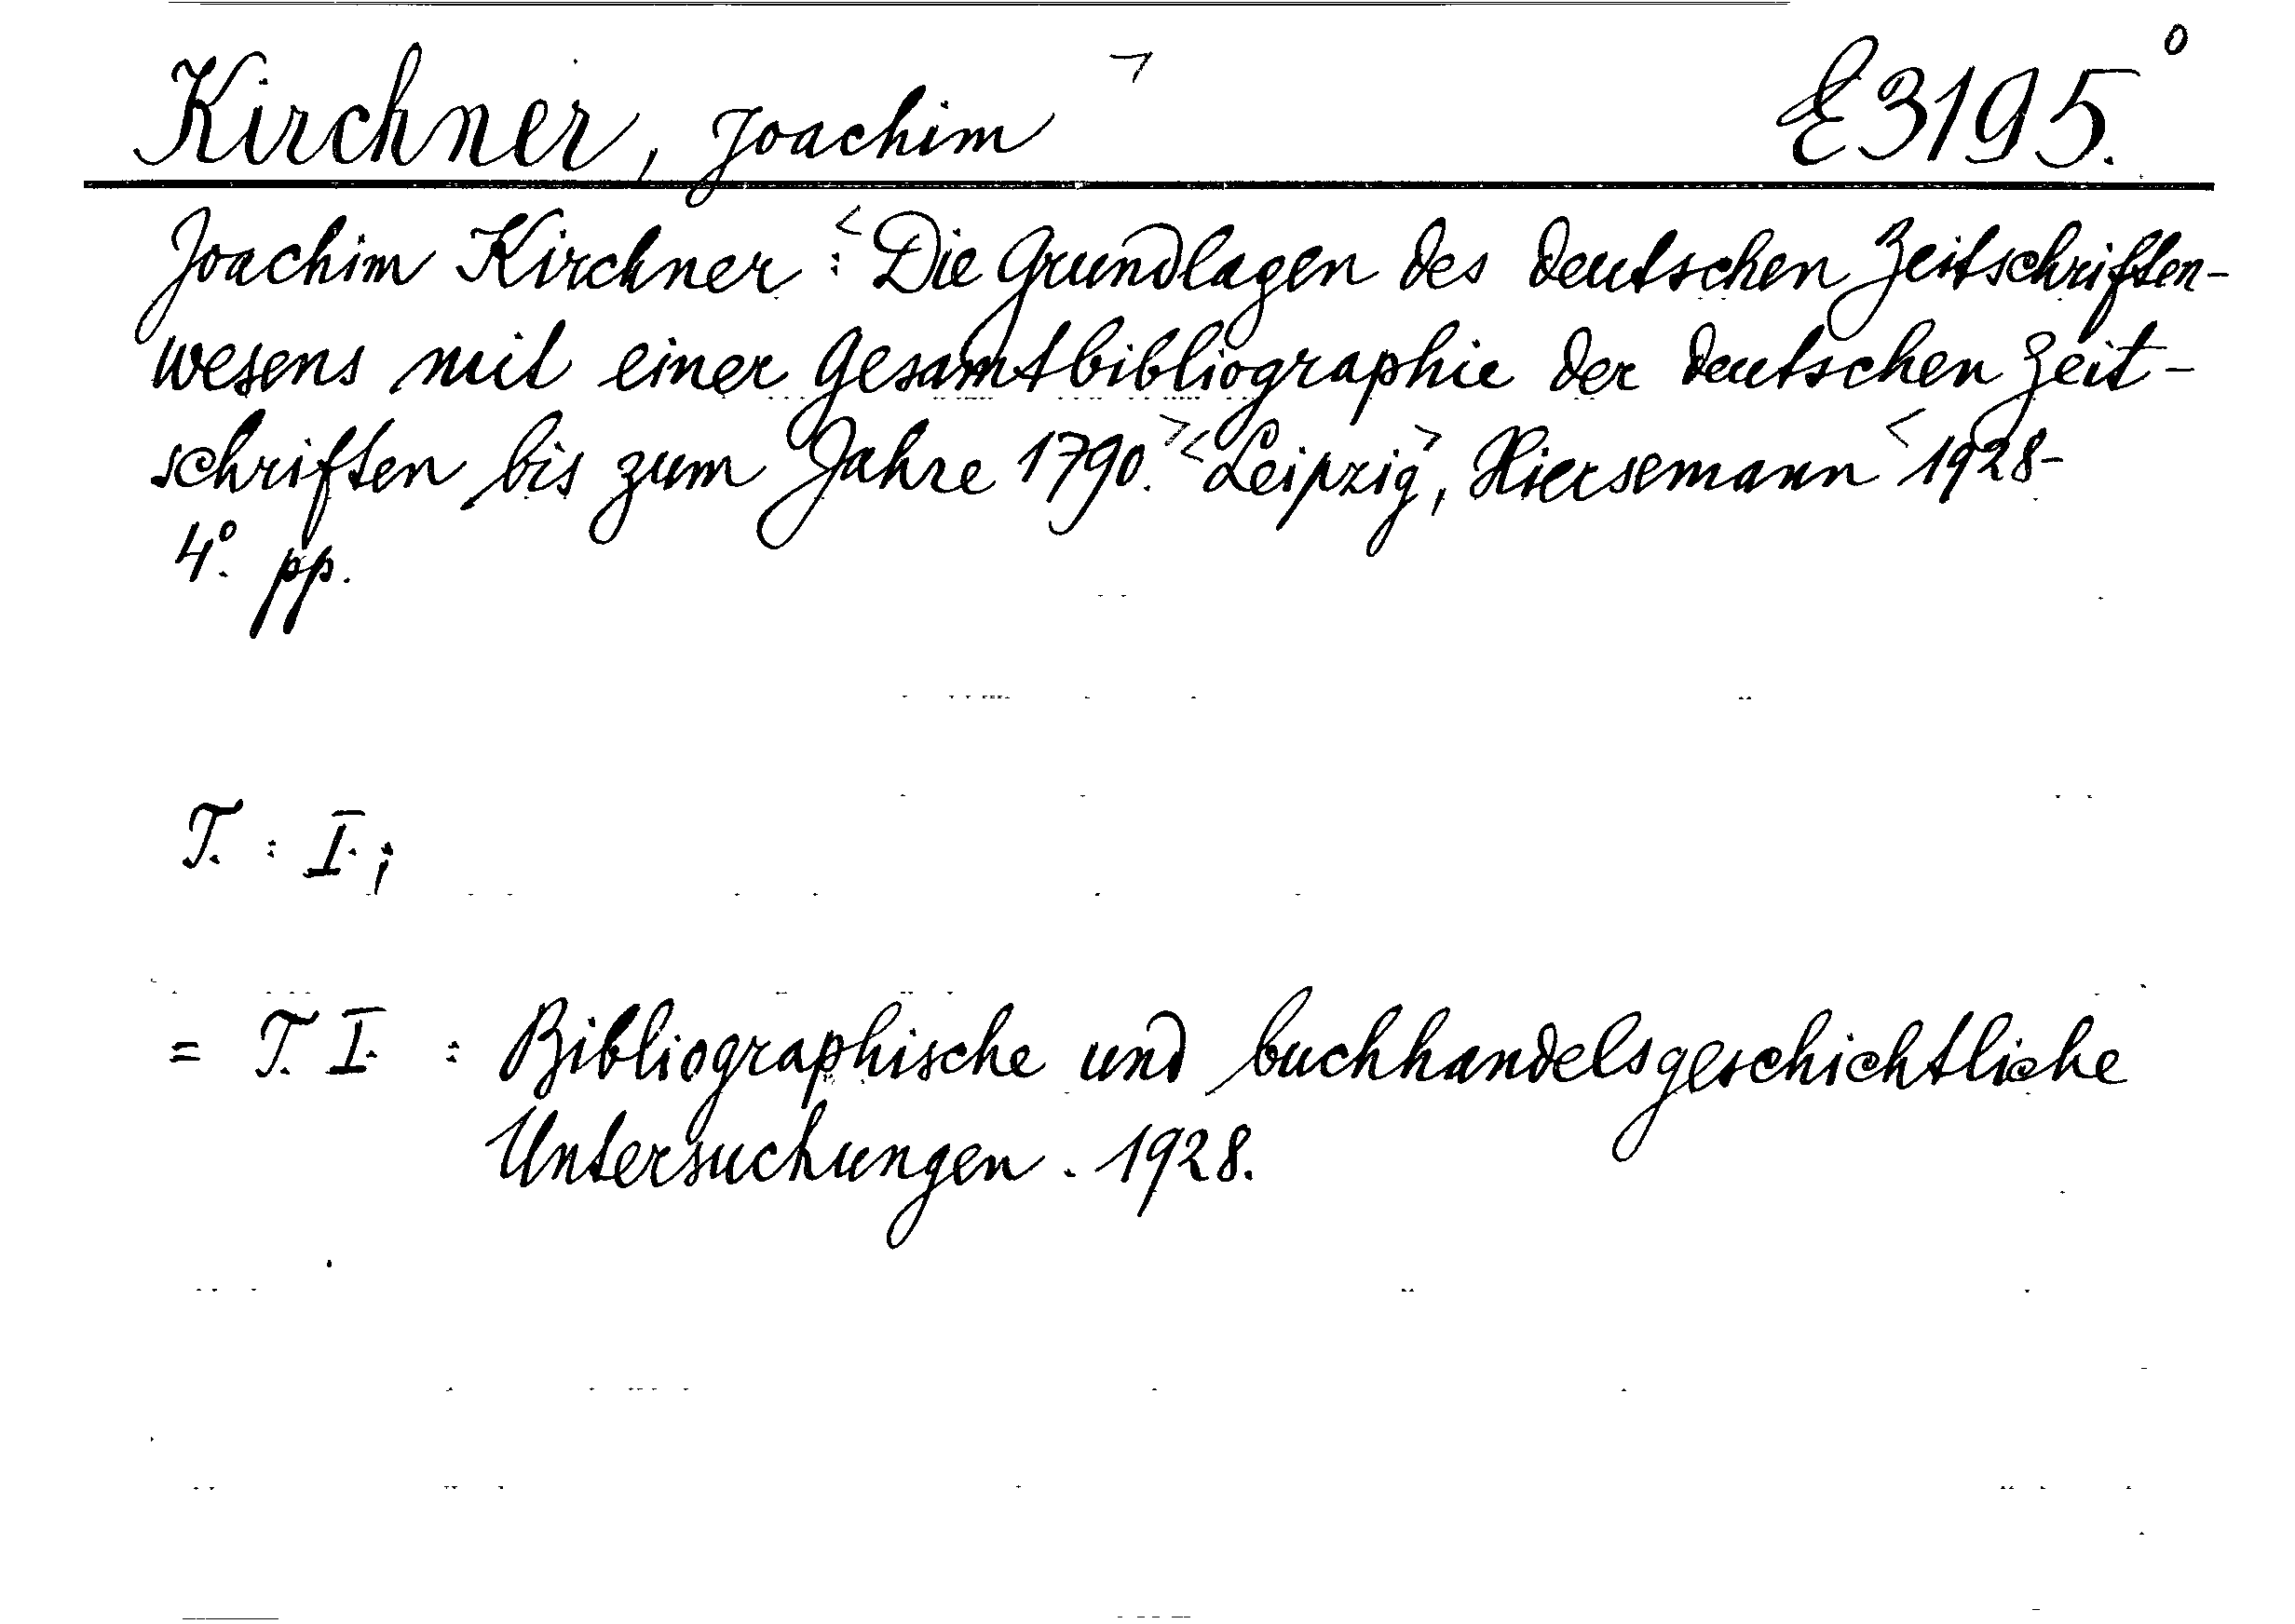 Kirchner, Joachim ¬ E 3195.°
Joachim Kirchner : <Die Grundlagen des deutschen Zeitschriften-
wesens mit einer Gesamtbibliographie der deutschen Zeit-
schriften bis zum Jahre 1790.> <Leipzig>, Hiersemann <1928-
4°. pp.
T. : I. ;
= T. I. : Bibliographische und buchhandelsgeschichtliche
Untersuchungen. 1928.